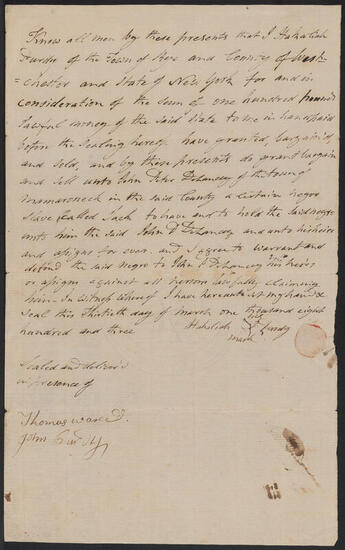 Know all men by these presents that I Hakaliah
Purdy of the Town of Rye and County of West
=chester and State of New York for and in
Consideration of the Sum of one hundred pounds
Lawful money of the said State to me in hand paid
before the Sealing hereof have granted, bargain'd,
and sold, and by these presents do grant bargain
and sell unto John Peter Delancey of the town of
Mamaroneck in the said County a certain negro
Slave Called Jack to have and to hold the said negro
unto him the said John P Delancey and unto his heirs
and assigns for ever. and I agree to warrant and
defend the said negro to John P Delancey his heirs
or assigns against all persons lawfully claiming
him. In witness whereof I have hereunto set my hand &
seal this Thirtieth day of march one thousand eight
hundred and three
Hakaliah his Purdy
mark
Sealed and deliver'd
in presence of
Thomas
John